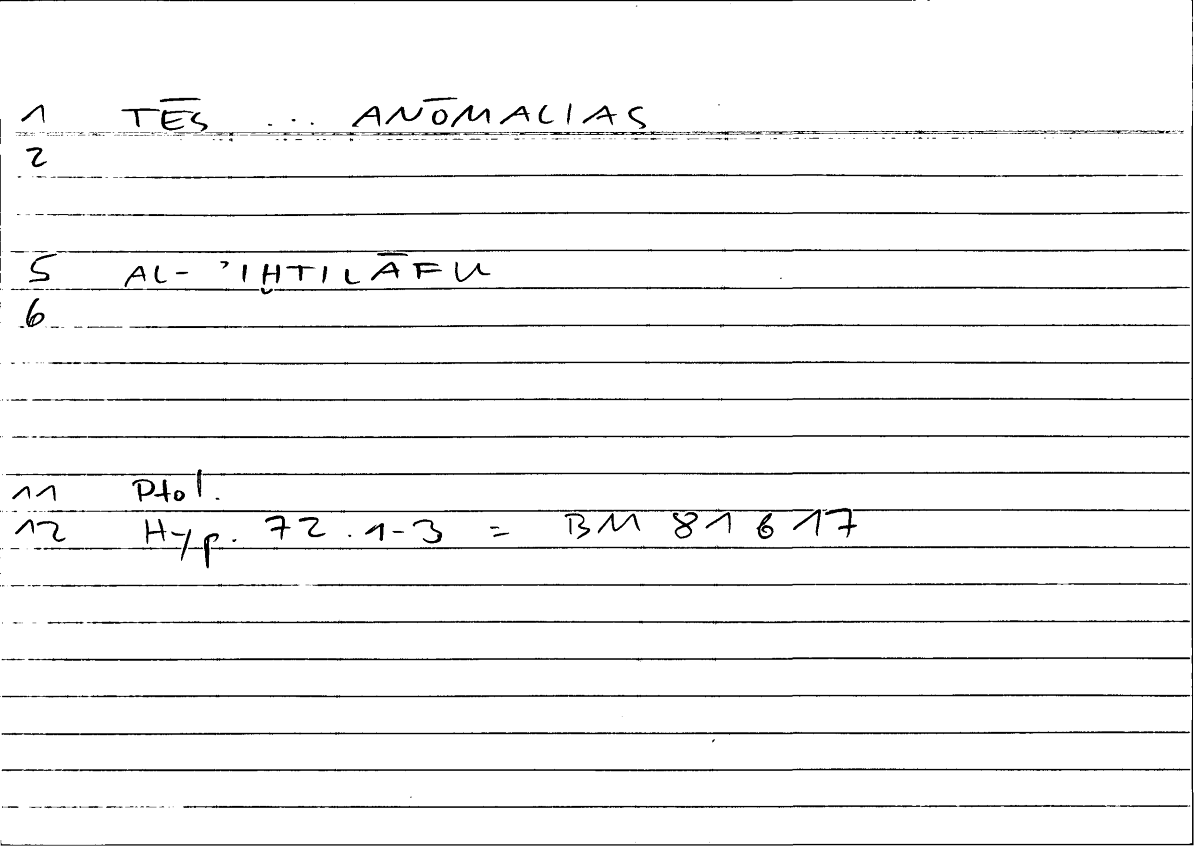 1 TĒS ... ANŌMALIAS
2
5 AL- ʾIḪTILĀFU
6
11 Ptol.
12 Hyp. 72.1-3 = BM 81617